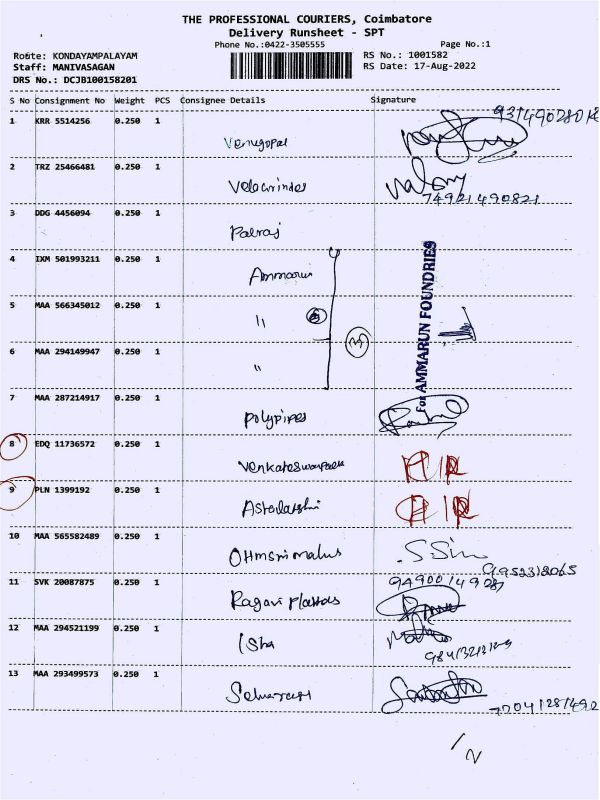 THE PROFESSIONAL COURIERS, Coimbatore
Delivery Runsheet - SPT
Phone No.:0422-3505555
Page No.:1
Route: KONDAYAMPALAYAM
RS No.: 1001582
Staff: MANIVASAGAN
RS Date: 17-Aug-2022
DRS No.: DCJB100158201
S No Consignment No Weight PCS Consignee Details Signature
1 KRR 5514256 0.250 1 Venugopal
2 TRZ 25466481 0.250 1
74921490821
3 DDG 4456094 0.250 1 Palraj
4 IXM 501993211 0.250 1 Ammarun
5 MAA 566345012 0.250 1 "
6 MAA 294149947 0.250 1 "
3
For AMMARUN FOUNDRIES
7 MAA 287214917 0.250 1 Polypipes
8 EDQ 11736572 0.250 1
9 PLN 1399192 0.250 1
10 MAA 565582489 0.250 1
9952318065
11 SVK 20087875 0.250 1 Ragavi
12 MAA 294521199 0.250 1 Isha
13 MAA 293499573 0.250 1
1/2